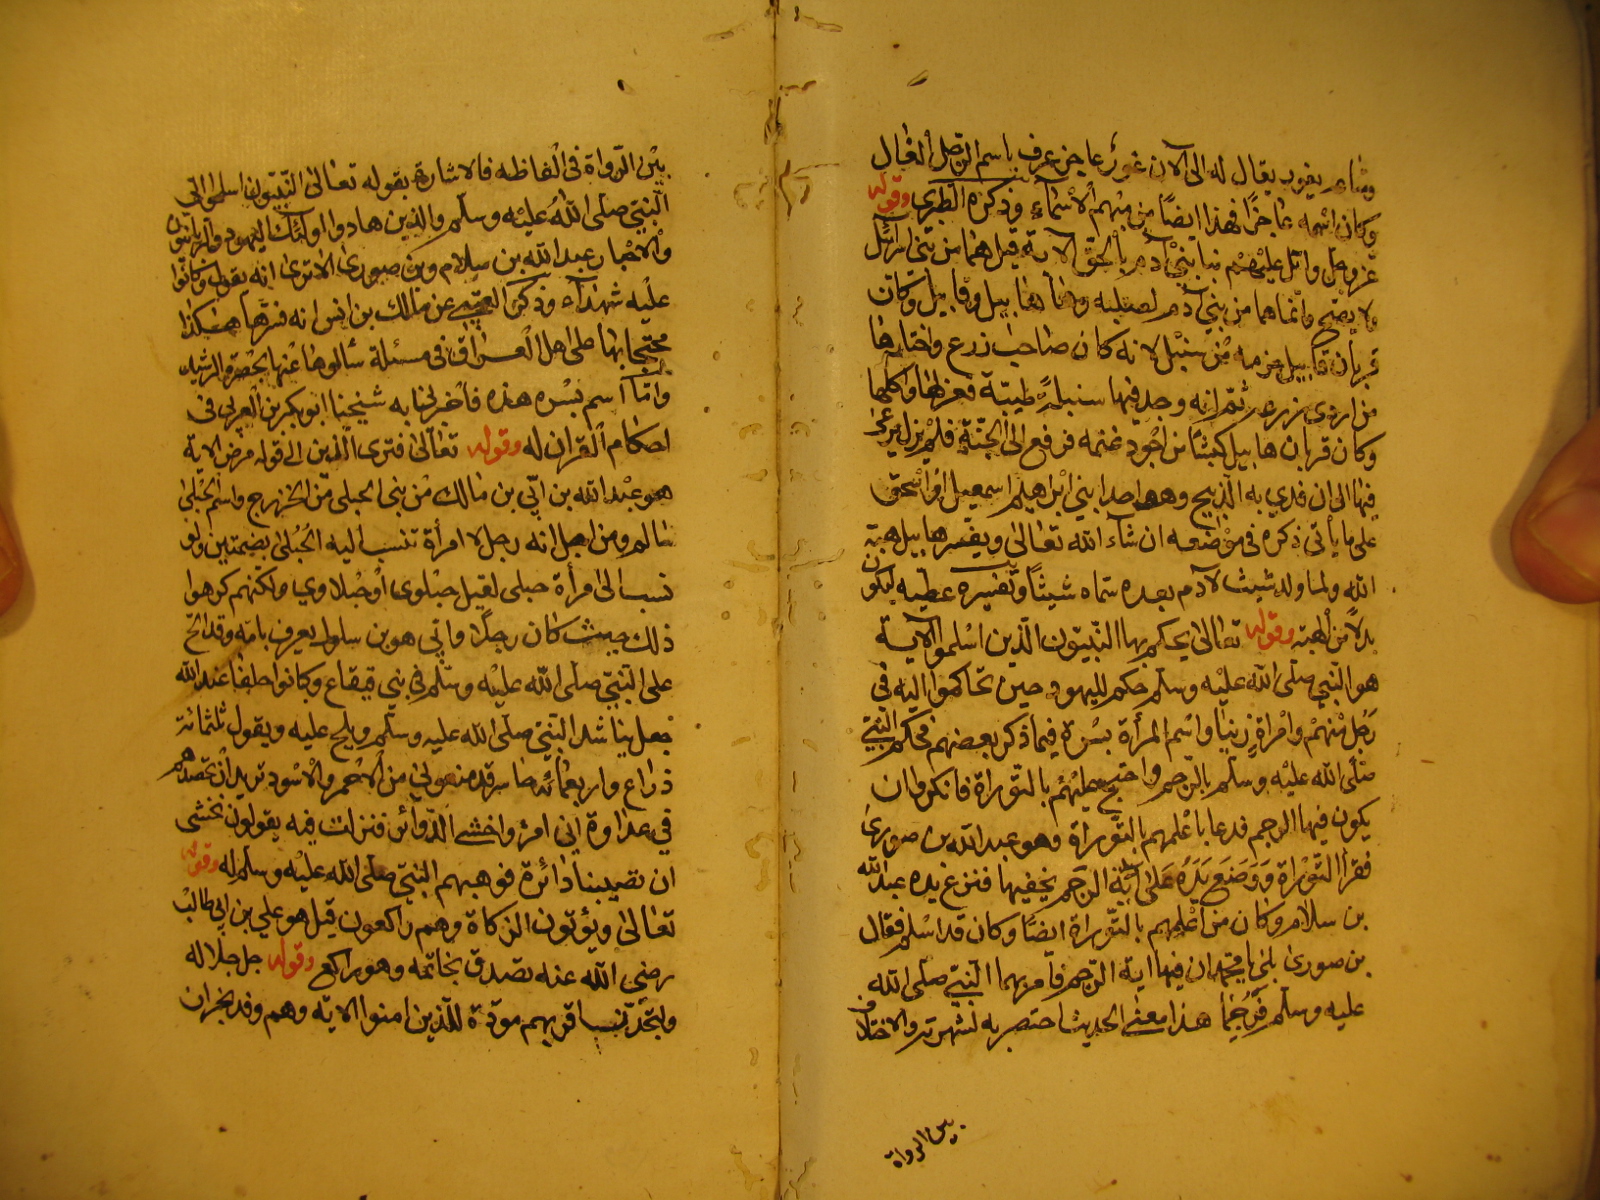 يقال له الى الآن غور عاجز عرف باسم الرجل القبال
وكان اسمه عاجزا فهذا ايضا من مبهم الاسماء وذكره الطبرى وقوله
عز وجل واتل عليهم نبا ابنى آدم بالحق الاية قيل هما من بنى اسرائيل
ولا يصح وانما هما من بني آدم لصلبه وهما هابيل وقابيل وكان
قربان قابيل حزمه من سنبل لانه كان صاحب زرع واختارها
من اردى زرعه ثم انه وجد فيها سنبلة طيبة ففركها واكلها
وكان قربان هابيل كبشا من اجود غنمه فرفع الى الجنة فلم يزل يرعى
فيها الى ان فدي به الذبيح وهو احد ابني ابراهيم اسمعيل او اسحق
على ما يأتي ذكره في موضعه ان شاء الله تعالى ويفسر هابيل هبة
الله ولما ولد شيث لآدم بعده سماه شيثا وتفسيره عطيه ليكون
بدلا من الهبته وقوله تعالى يحكم بها النبيون الذين اسلموا الآية
هو النبي صلى الله عليه وسلم حكم لليهود حين تحاكموا اليه في
رجل منهم وامراة زنيا واسم المرأة بسرة فيما ذكر بعضهم فحكم النبي
صلى الله عليه وسلم بالرجم واحتج عليهم بالتوراة فانكروا ان
يكون فيها الرجم فدعا باعلمهم بالتوراة وهو عبد الله بن صورى
فقرأ التوراة ووضع يده على آية الرجم يخفيها فنزع يده عبد الله
بن سلام وكان من اعلمهم بالتوراة ايضا وكان قد اسلم فقال
بن صورى بلى يا محمد ان فيها اية الرجم فامر بهما النبي صلى الله
عليه وسلم فرجما هذا معنى الحديث اختصر به لشهرته والاختلاف
بين الرواة
بين الرواة في الفاظه فالاشارة بقوله تعالى النبيون اسلموا الى
النبي صلى الله عليه وسلم والذين هادوا اولئك اليهود والربانيون
والاحبار عبد الله بن سلام وبن صورى الا ترى انه يقول وكانوا
عليه شهداء وذكر العتبي عن مالك بن انس انه فسرها هكذا
محتجا بها على اهل العراق في مسئلة سألوها عنها بحضرة الرشيد
واما اسم بسره هذه فأخبرنا به شيخنا ابو بكر بن العربي في
احكام القران له وقوله تعالى فترى الذين الى قوله مرض الاية
هو عبد الله بن ابي بن مالك من بني الحبلى من الخزرج واسم الحبلى
سالم ومن اجل انه رجل لا امرأة تنسب اليه الحبلى بضمتين ولو
نسب الى امرأة حبلى لقيل حبلوى او حبلاوي ولكنهم كرهوا
ذلك حيث كان رجلا وابي هو بن سلول يعرف بامه وقد الح
على النبي صلى الله عليه وسلم في بني قينقاع وكانوا حلفا عبد الله
فجعل يناشد النبي صلى الله عليه وسلم ويلح عليه ويقول ثلثمائة
ذراع واربعمائة حاسر قد منعوني من الاحمر والاسود تريد ان تحصدهم
في غداوة اني امرؤ واخشى الدوائر فنزلت فيه يقولون نخشى
ان تصيبنا دائرة فوهبهم النبي صلى الله عليه وسلم له وقوله
تعالى ويؤتون الزكاة وهم راكعون قيل هو علي بن ابي طالب
رضي الله عنه تصدق بخاتمه وهو راكع وقوله جل جلاله
ولتجدن اقربهم مودة للذين امنوا الاية وهم وفد نجران